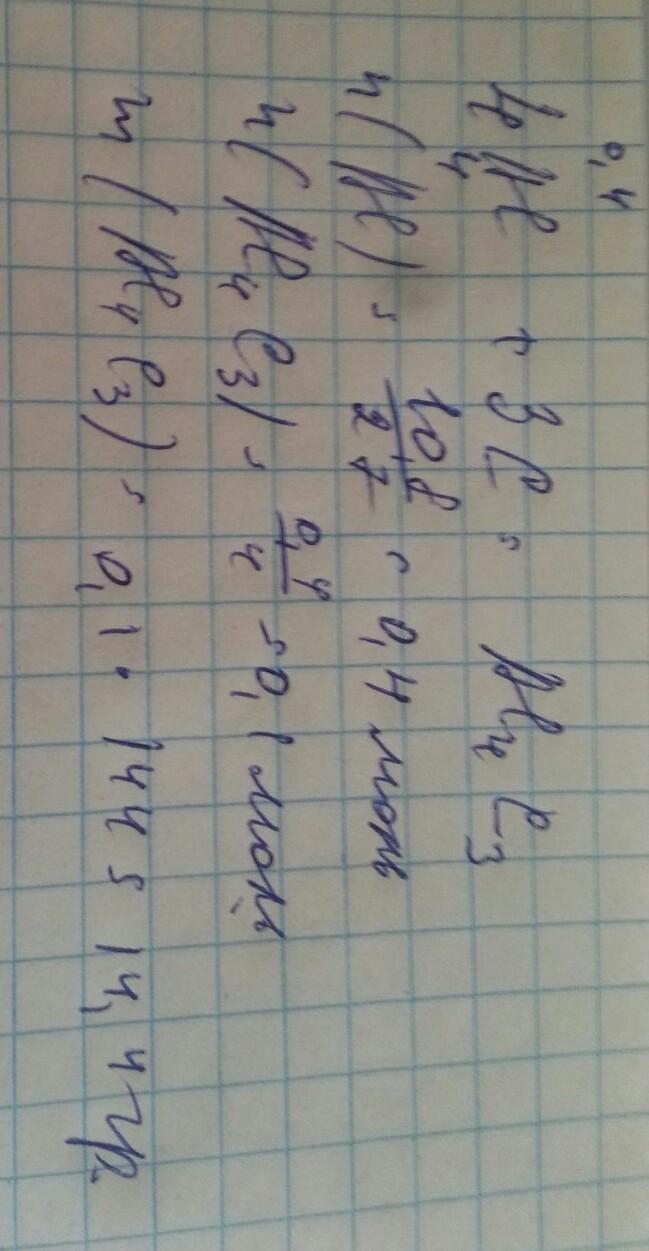 0,4
4Al + 3C = Al4C3
4
n(Al) = 10,8/27 = 0,4 моль
n(Al4C3) = 0,4/4 = 0,1 моль
m(Al4C3) = 0,1 · 144 = 14,4 гр